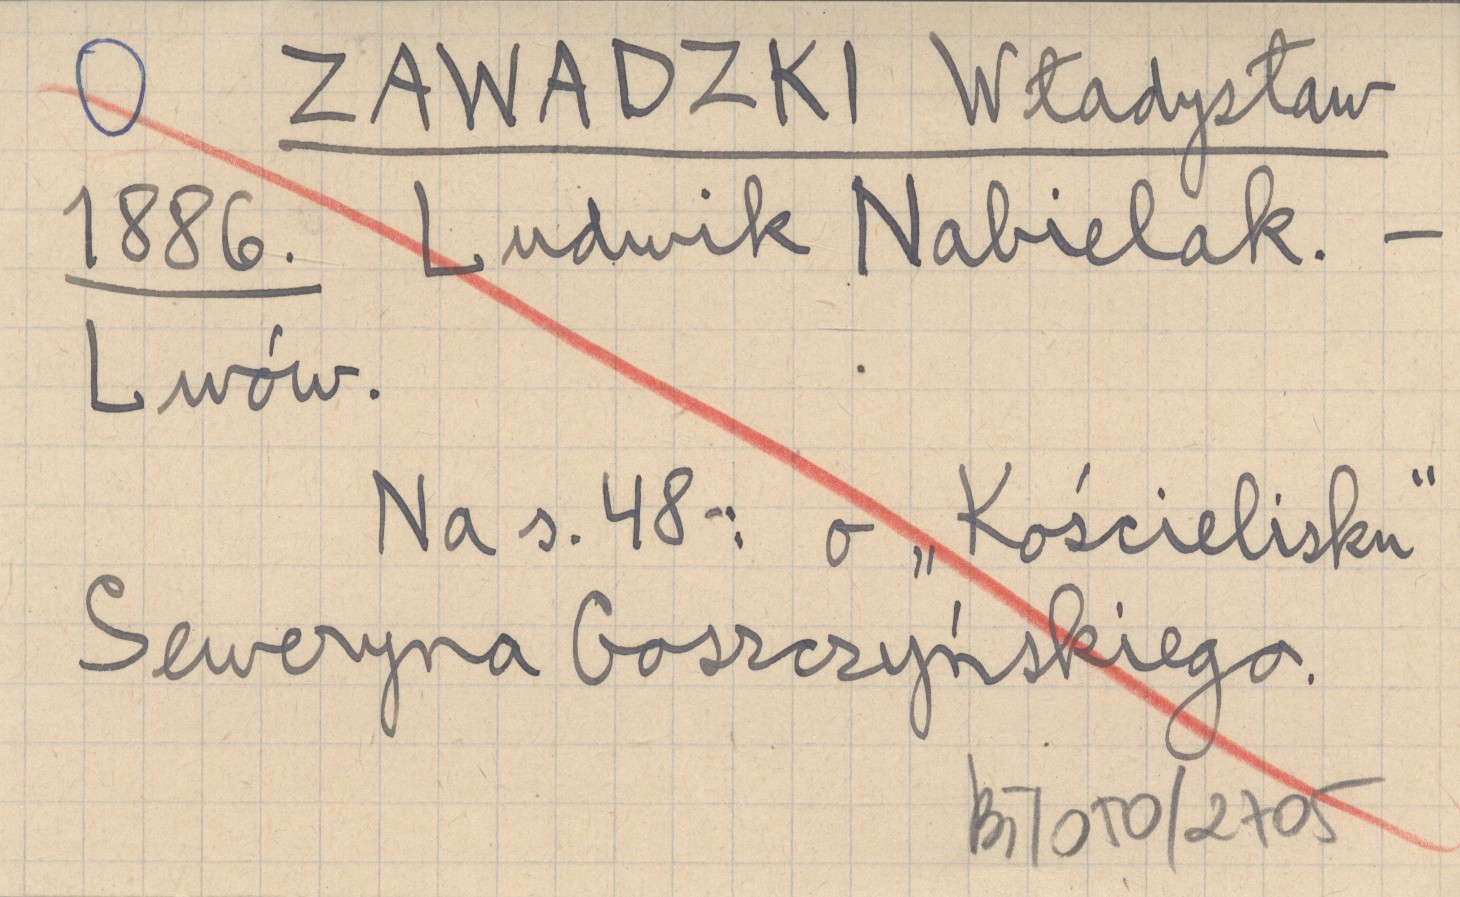 O ZAWADZKI Władysław
1886. Ludwik Nabielak. –
Lwów.
Na s. 48-: o „Kościelisku“
Seweryna Goszczyńskiego.
BT/OTO/2705